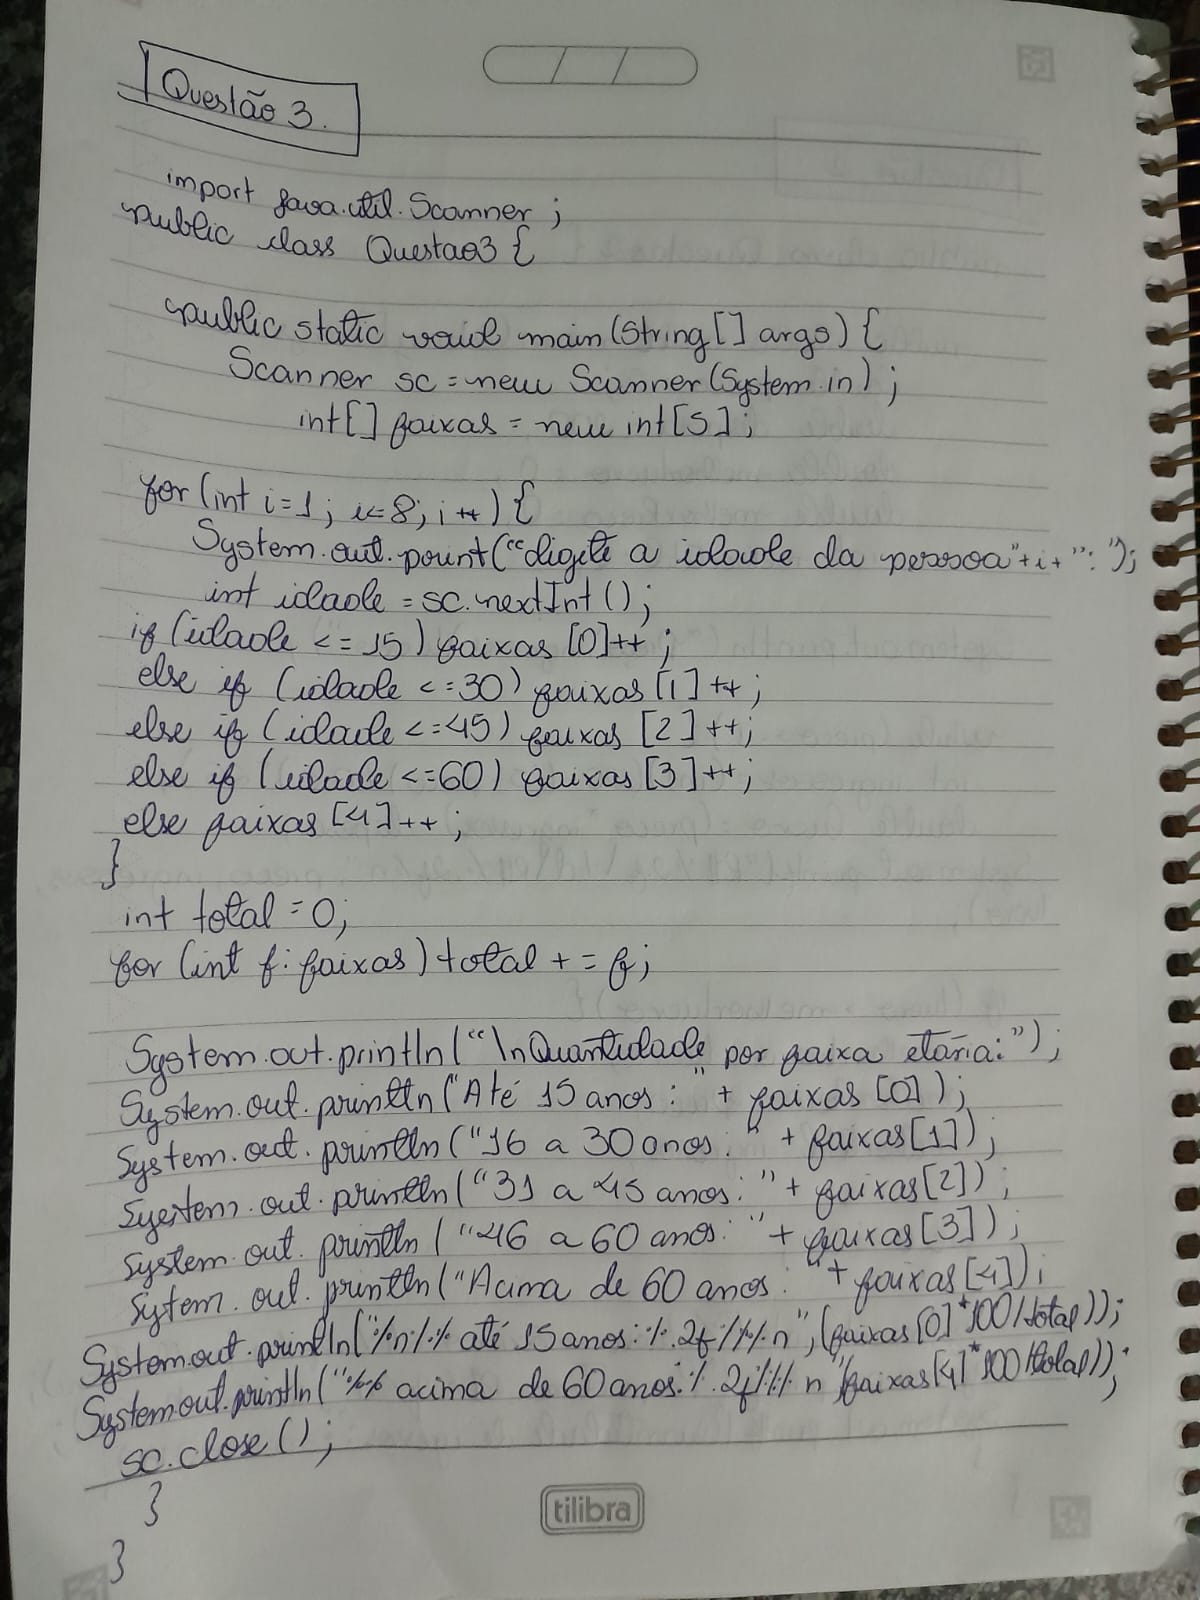 Questão 3.
import java.util.Scanner;
public class Questao3 {
public static void main(String[] args) {
Scanner sc = new Scanner(System.in);
int[] faixas = new int[5];
for (int i=1; i<=8; i++) {
System.out.print("digite a idade da pessoa "+i+": ");
int idade = sc.nextInt();
if (idade <= 15) faixas [0]++;
else if (idade <=30) faixas [1]++;
else if (idade <=45) faixas [2]++;
else if (idade <=60) faixas [3]++;
else faixas [4]++;
}
int total = 0;
for (int f: faixas) total += f;
System.out.println("\nQuantidade por faixa etária:");
System.out.println("Até 15 anos: " + faixas [0]);
System.out.println("16 a 30 anos: " + faixas[1]);
System.out.println("31 a 45 anos: " + faixas[2]);
System.out.println("46 a 60 anos: " + faixas[3]);
Sytem.out.println("Acima de 60 anos: "+ faixas[4]);
System.out.println("%n%% até 15 anos: %.2f%%%n", (faixas[0]*100/total));
System.out.println("%% acima de 60 anos: %.2f%%%n" faixas[4]*100/total));
sc.close();
}
}
tilibra